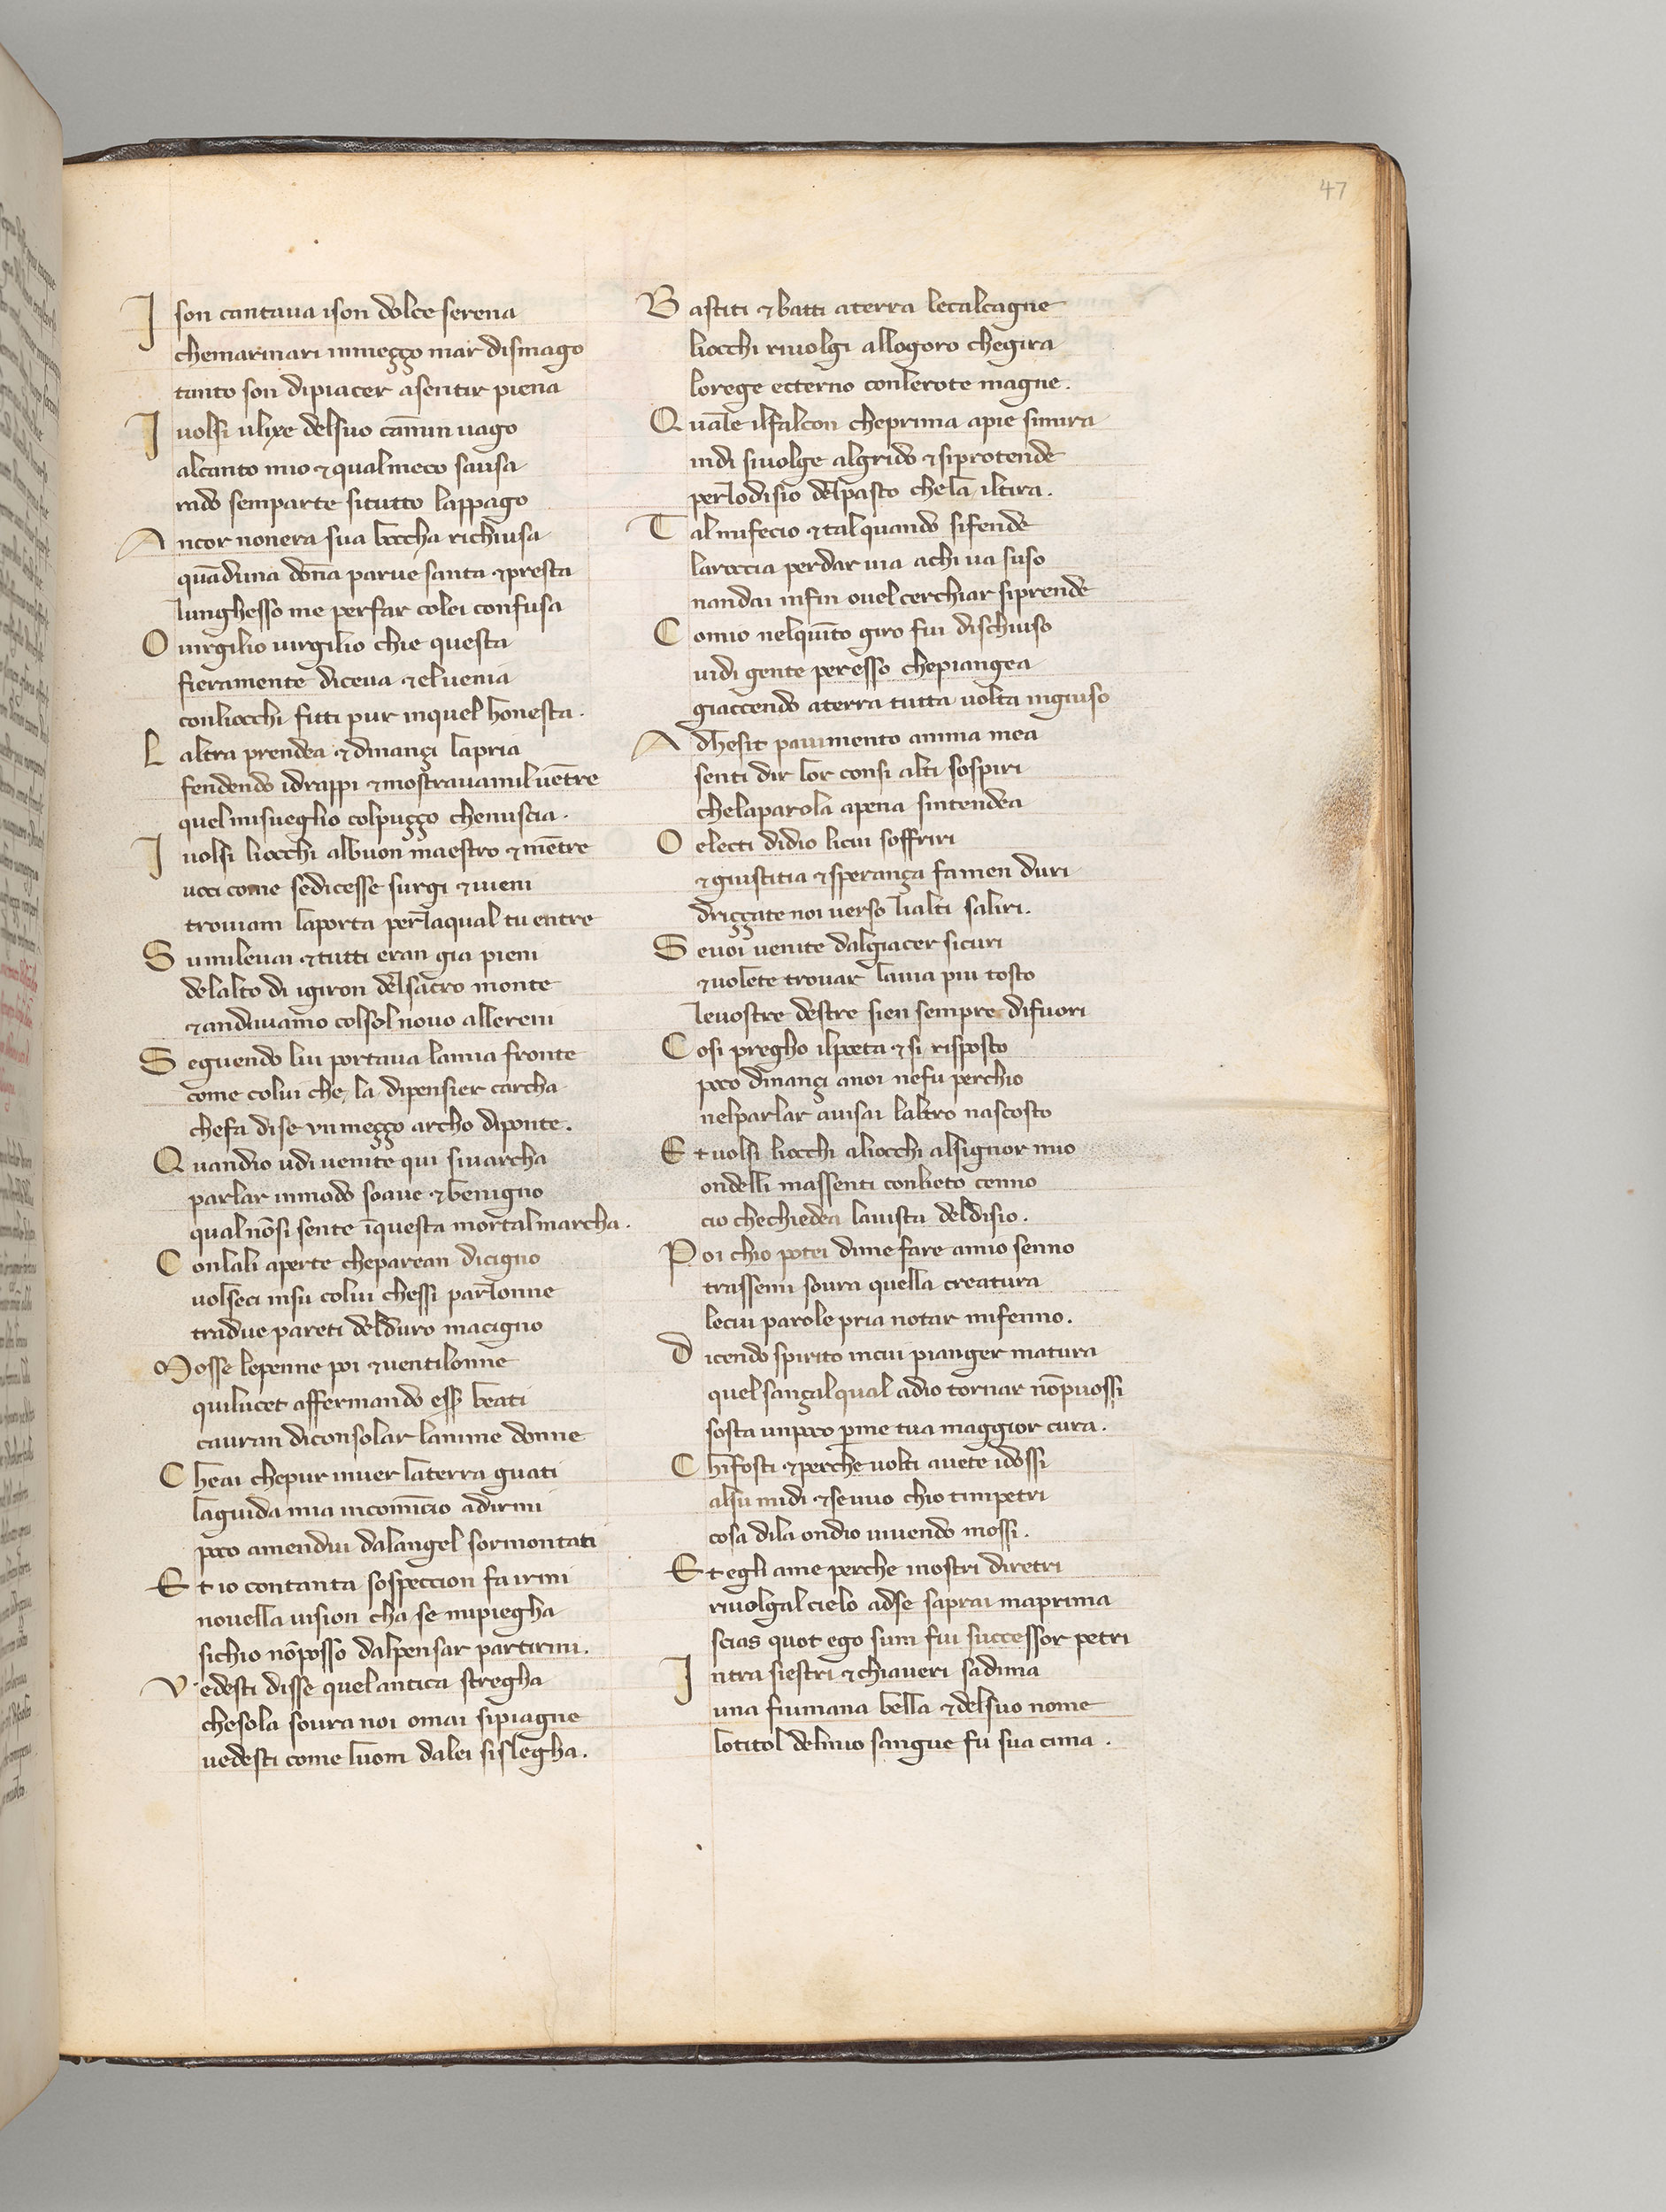 47
I son cantaua ison dolce serena
chemarinari inmeggo mar dismago
tanto son dipiacer asentir piena
I uolsi ulixe delsuo cāmin uago
alcanto mio & qualmeco sausa
rado semparte situtto lappago
A ncor nonera sua boccha richiusa
quāduna dōna parue santa & presta
lunghesso me perfar colei confusa
O uirgilio uirgilio chie questa
fieramente diceua & eluenia
conliocchi fitti pur inquel honesta.
L altra prendea & dinançi lapria
fendendo idrappi & mostrauamil uētre
quel misueglio colpuçço chenuscia.
I uolsi liocchi albuon maestro & mētre
uoci come sedicesse surgi & uieni
trouiam laporta perlaqual tu entre
S u mileuai & tutti eran gia pieni
delalto di igiron delsacro monte
& andauamo colsol nouo allereni
S eguendo lui portaua lamia fronte
come colui che la dipensier carcha
chefa dise vn meçço archo diponte.
Q uandio udi uenite qui siuarcha
parlar inmodo soaue & benigno
qual nōsi sente īquesta mortal marcha.
C onlali aperte cheparean dicigno
uolseci insu colui chessi parlonne
tradue pareti delduro macigno
M osse lepenne poi & uentilonne
quilucet affermando esser beati
cauran diconsolar lanime donne
C heai chepur inuer laterra guati
laguida mia incominciò adirmi
poco amendui dalangel sormontati
E t io contanta sospeccion fa irmi
nouella uision cha se mipiegha
sichio nōposso dalpensar partirmi.
V edesti disse quel antica stregha
chesola soura noi omai sipiagne
uedesti come luom dalei sislegha.
B astiti & batti aterra lecalcagne
liocchi riuolgi allogoro chegira
lorege ecterno conlerote magne.
Q uale ilfalcon cheprima apie simira
indi siuolge algrido & siprotende
perlodisio delpasto chela iltira.
T al mifecio & tal quando sifende
laroccia perdar uia achi ua suso
nandai infin ouel cerchiar siprende
C omio nelquīto giro fui dischiuso
uidi gente peresso chepiangea
giaccendo aterra tutta uolta ingiuso
A dhesit pauimento anima mea
senti dir lor consi alti sospiri
chelaparola apena sintendea
O electi didio licui soffriri
& giustitia & sperança famen duri
driççate noi uerso lialti saliri.
S euoi uenite dalgiacer sicuri
& uolete trouar lauia piu tosto
leuostre destre sien sempre difuori
C osi pregho ilpoeta & si risposto
poco dinançi anoi nefu perchio
nelparlar auisai laltro nascosto
E t uolsi liocchi aliocchi alsignor mio
ondelli massenti conlieto cenno
cio chechiedea lauista deldisio.
P oi chio potei dime fare amio senno
trassemi soura quella creatura
lecui parole pria notar mifenno.
D icendo spirito incui pianger matura
quel sançal qual adio tornar nōpuossi
sosta unpoco pme tua maggior cura.
C hifosti & perche uolti auete idossi
alsu midi & seuuo chio timpetri
cosa dila ondio uiuendo mossi.
E t egli ame perche inostri diretri
riuolgal cielo adse saprai maprima
scias quot ego sum fui successor petri
I ntra siestri & chiaueri sadima
una fiumana bella & delsuo nome
lotitol delmio sangue fu sua cima.